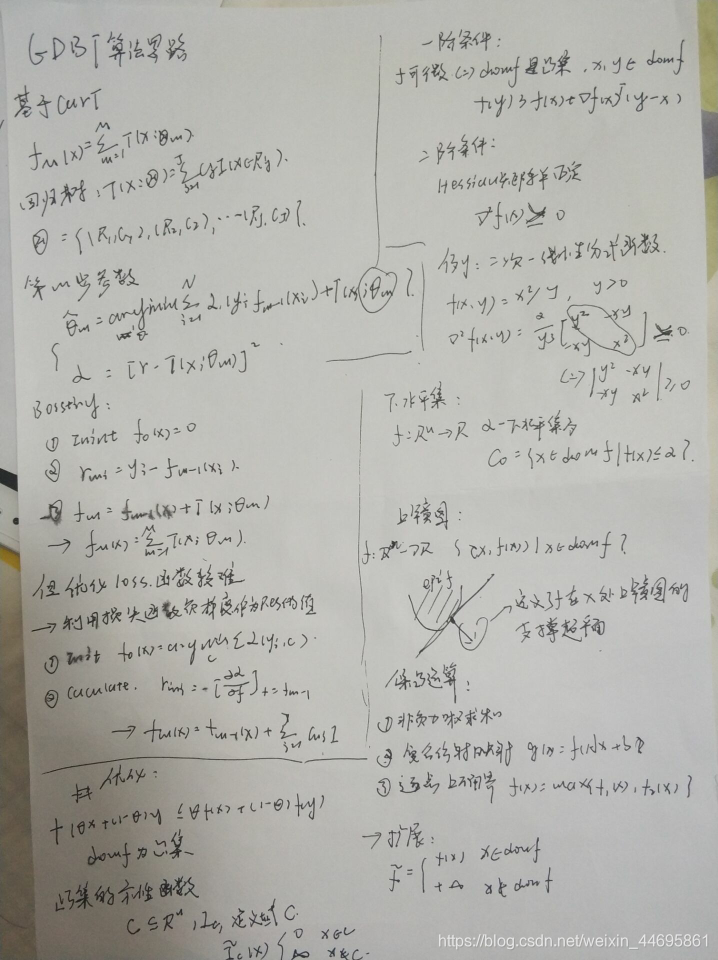 GDBT算法思路
基于CART
f_M(x)=∑_{m=1}^{M} T(x;θ_m).
回归树:T(x;Θ)=∑_{j=1}^{J} C_j I(x∈R_j).
Θ={(R_1,C_1),(R_2,C_2),…(R_J,C_J)}.
第m步参数
θ̂_m=argmin ∑_{i=1}^{N} L(y_i, f_{m-1}(x_i)+T(x_i;θ_m)).
L=[r-T(x;θ_m)]²
Boosting:
① Inint f_0(x)=0
② r_{mi}=y_i-f_{m-1}(x_i).
③ f_m=f_{m-1}(x)+T(x;θ_m)
→ f_M(x)=∑_{m=1}^{M} T(x;θ_m).
但优化loss函数较难
→利用损失函数负梯度作为Res的值
① Init f_0(x)=argmin_c ∑L(y_i,c).
② Caculate. r_{mi}=-[∂L/∂f]_{f=f_{m-1}}
→ f_m(x)=f_{m-1}(x)+∑_{j=1}^{J} C_{mj} I
优化:
f(θx+(1-θ)y)≤θf(x)+(1-θ)f(y)
domf为凸集
凸集的示性函数
C⊆Rⁿ, I_C, 定义域C.
Ĩ_C(x) { 0 x∈C
∞ x∉C.
一阶条件:
f可微(=) domf是凸集, x,y∈domf
f(y)≥f(x)+∇f(x)ᵀ(y-x)
二阶条件:
Hessian矩阵半正定
∇²f(x)≥0
例y:二次-线性分式函数.
f(x,y)=x²/y, y>0
∇²f(x,y)=2/y³[y² -xy
-xy x²]≥0.
(=)|y² -xy
-xy x²|≥0
下水平集:
f:Rⁿ→R α-下水平集为
C_α={x∈domf|f(x)≤α}.
上镜图:
f:Rⁿ→R {(x,f(x))|x∈domf}
epi f
定义了f在x处上镜图的
支撑超平面
保凸运算:
① 非负加权求和
② 复合仿射映射 g(x)=f(Ax+b)
③ 逐点上确界 f(x)=max{f_1(x),f_2(x)}
→扩展:
f̃={ f(x) x∈domf
+∞ x∉domf
https://blog.csdn.net/weixin_44695861